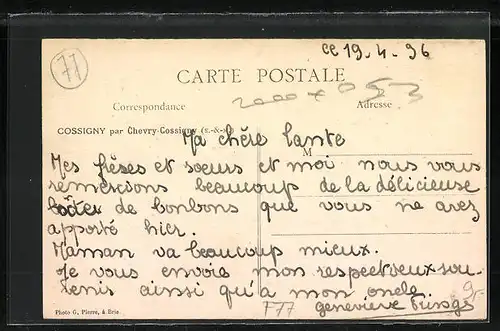 ce 19-4-96
77
CARTE POSTALE
2000 x 053
Correspondance
Adresse
COSSIGNY par Chevry-Cossigny (S.-&-M.)
Ma chère tante
M
Mes frères et sœurs et moi nous vous
remercions beaucoup de la délicieuse
boîte de bonbons que vous ne avez
apporté hier.
Maman va beaucoup mieux.
Je vous envoie mon respectueux sou-
venis ainsi qu'a mon oncle.
Geneviève
F77
Photo G. Pierre, à Brie